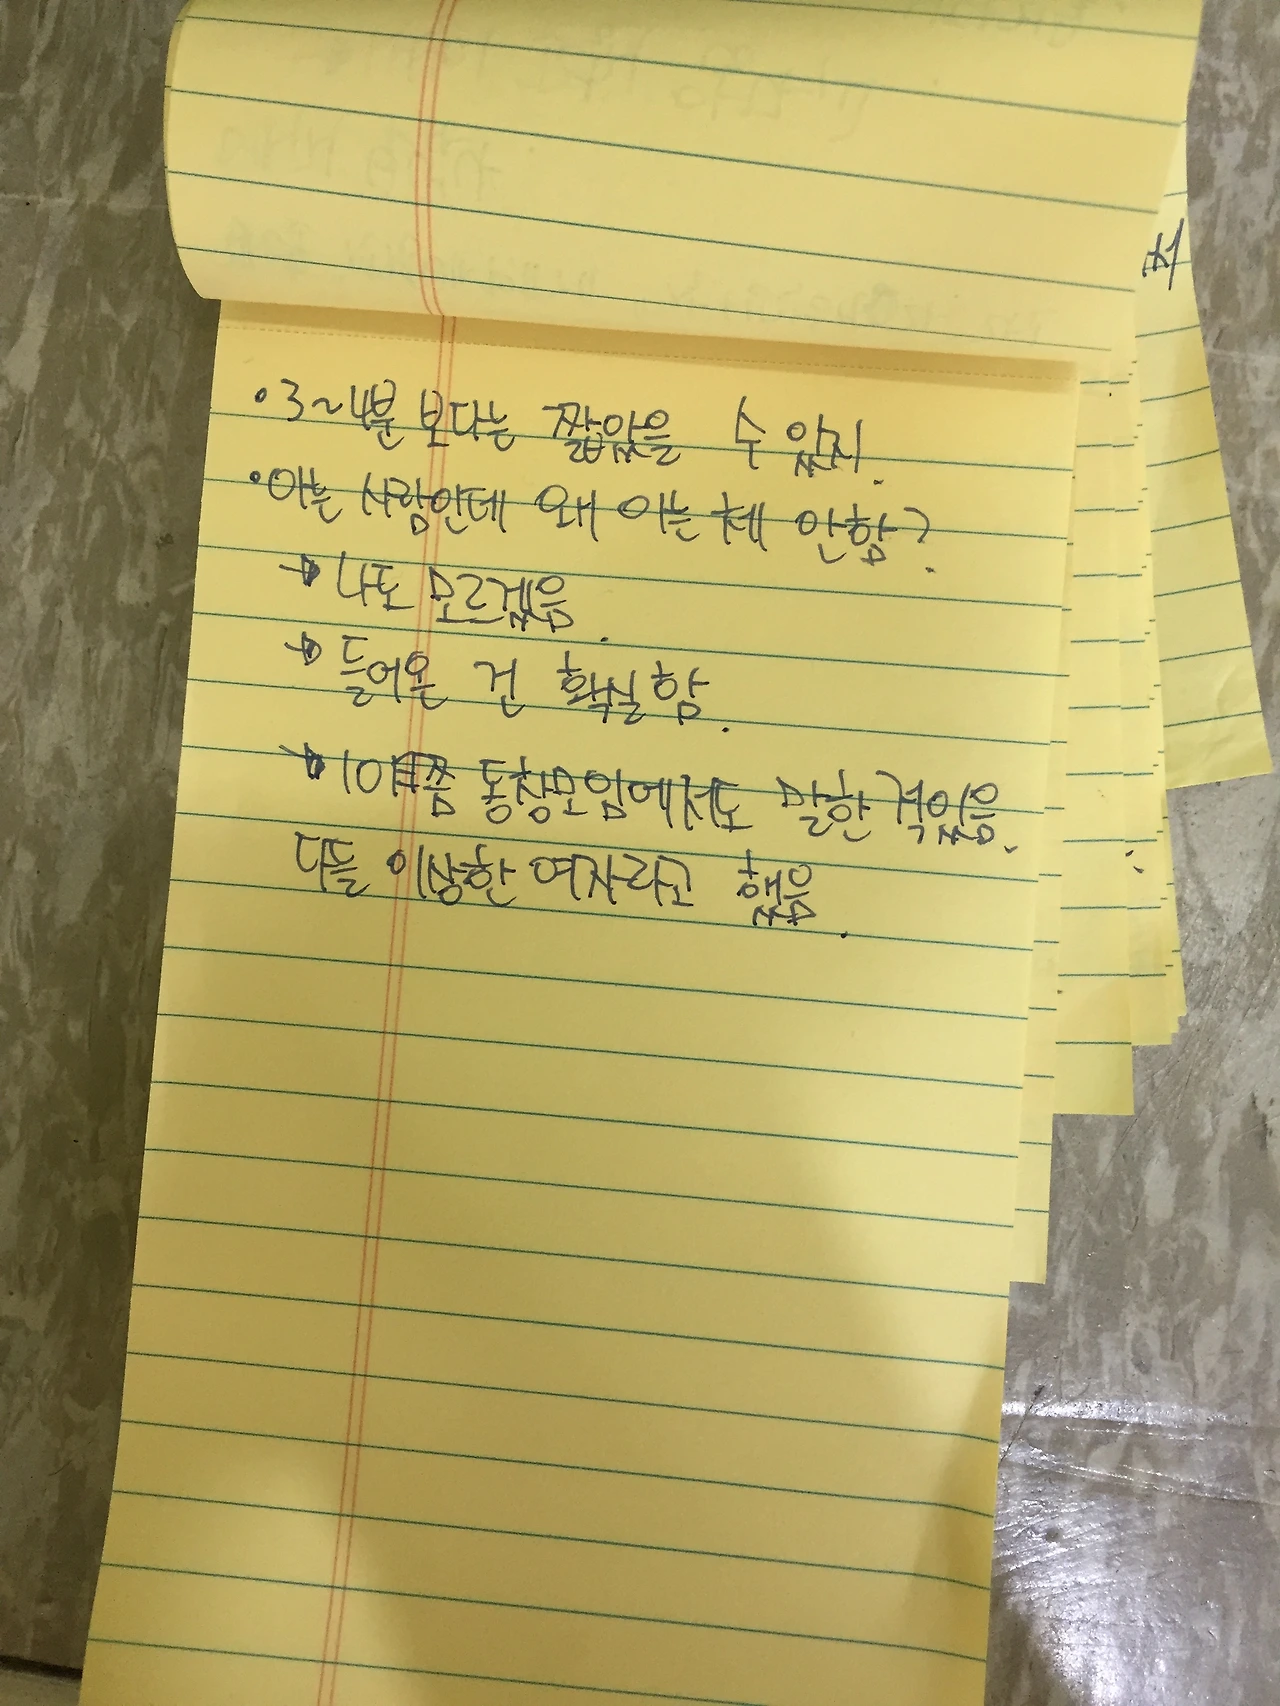 • 3~4분 보다는 짧았을 수 있지.
• 아는 사람인데 왜 아는 체 안함?
→ 나도 모르겠음.
→ 들어온 건 확실함.
→ 10년쯤 동창모임에서도 말한 적있음.
다들 이상한 여자라고 했음.